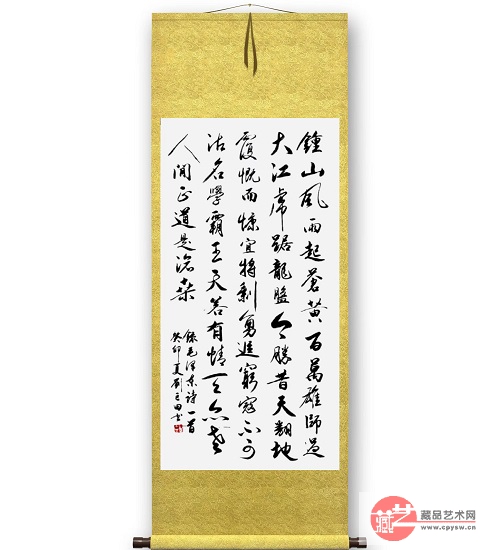 鍾山风雨起蒼黄百萬雄師過
大江虎踞龍盤今勝昔天翻地
覆慨而慷宜將剩勇追窮寇不可
沽名學霸王天若有情天亦老
人間正道是滄桑
錄毛澤東詩一首
癸卯夏劉田书
藏艺
藏品艺术网
www.cpysw.cn